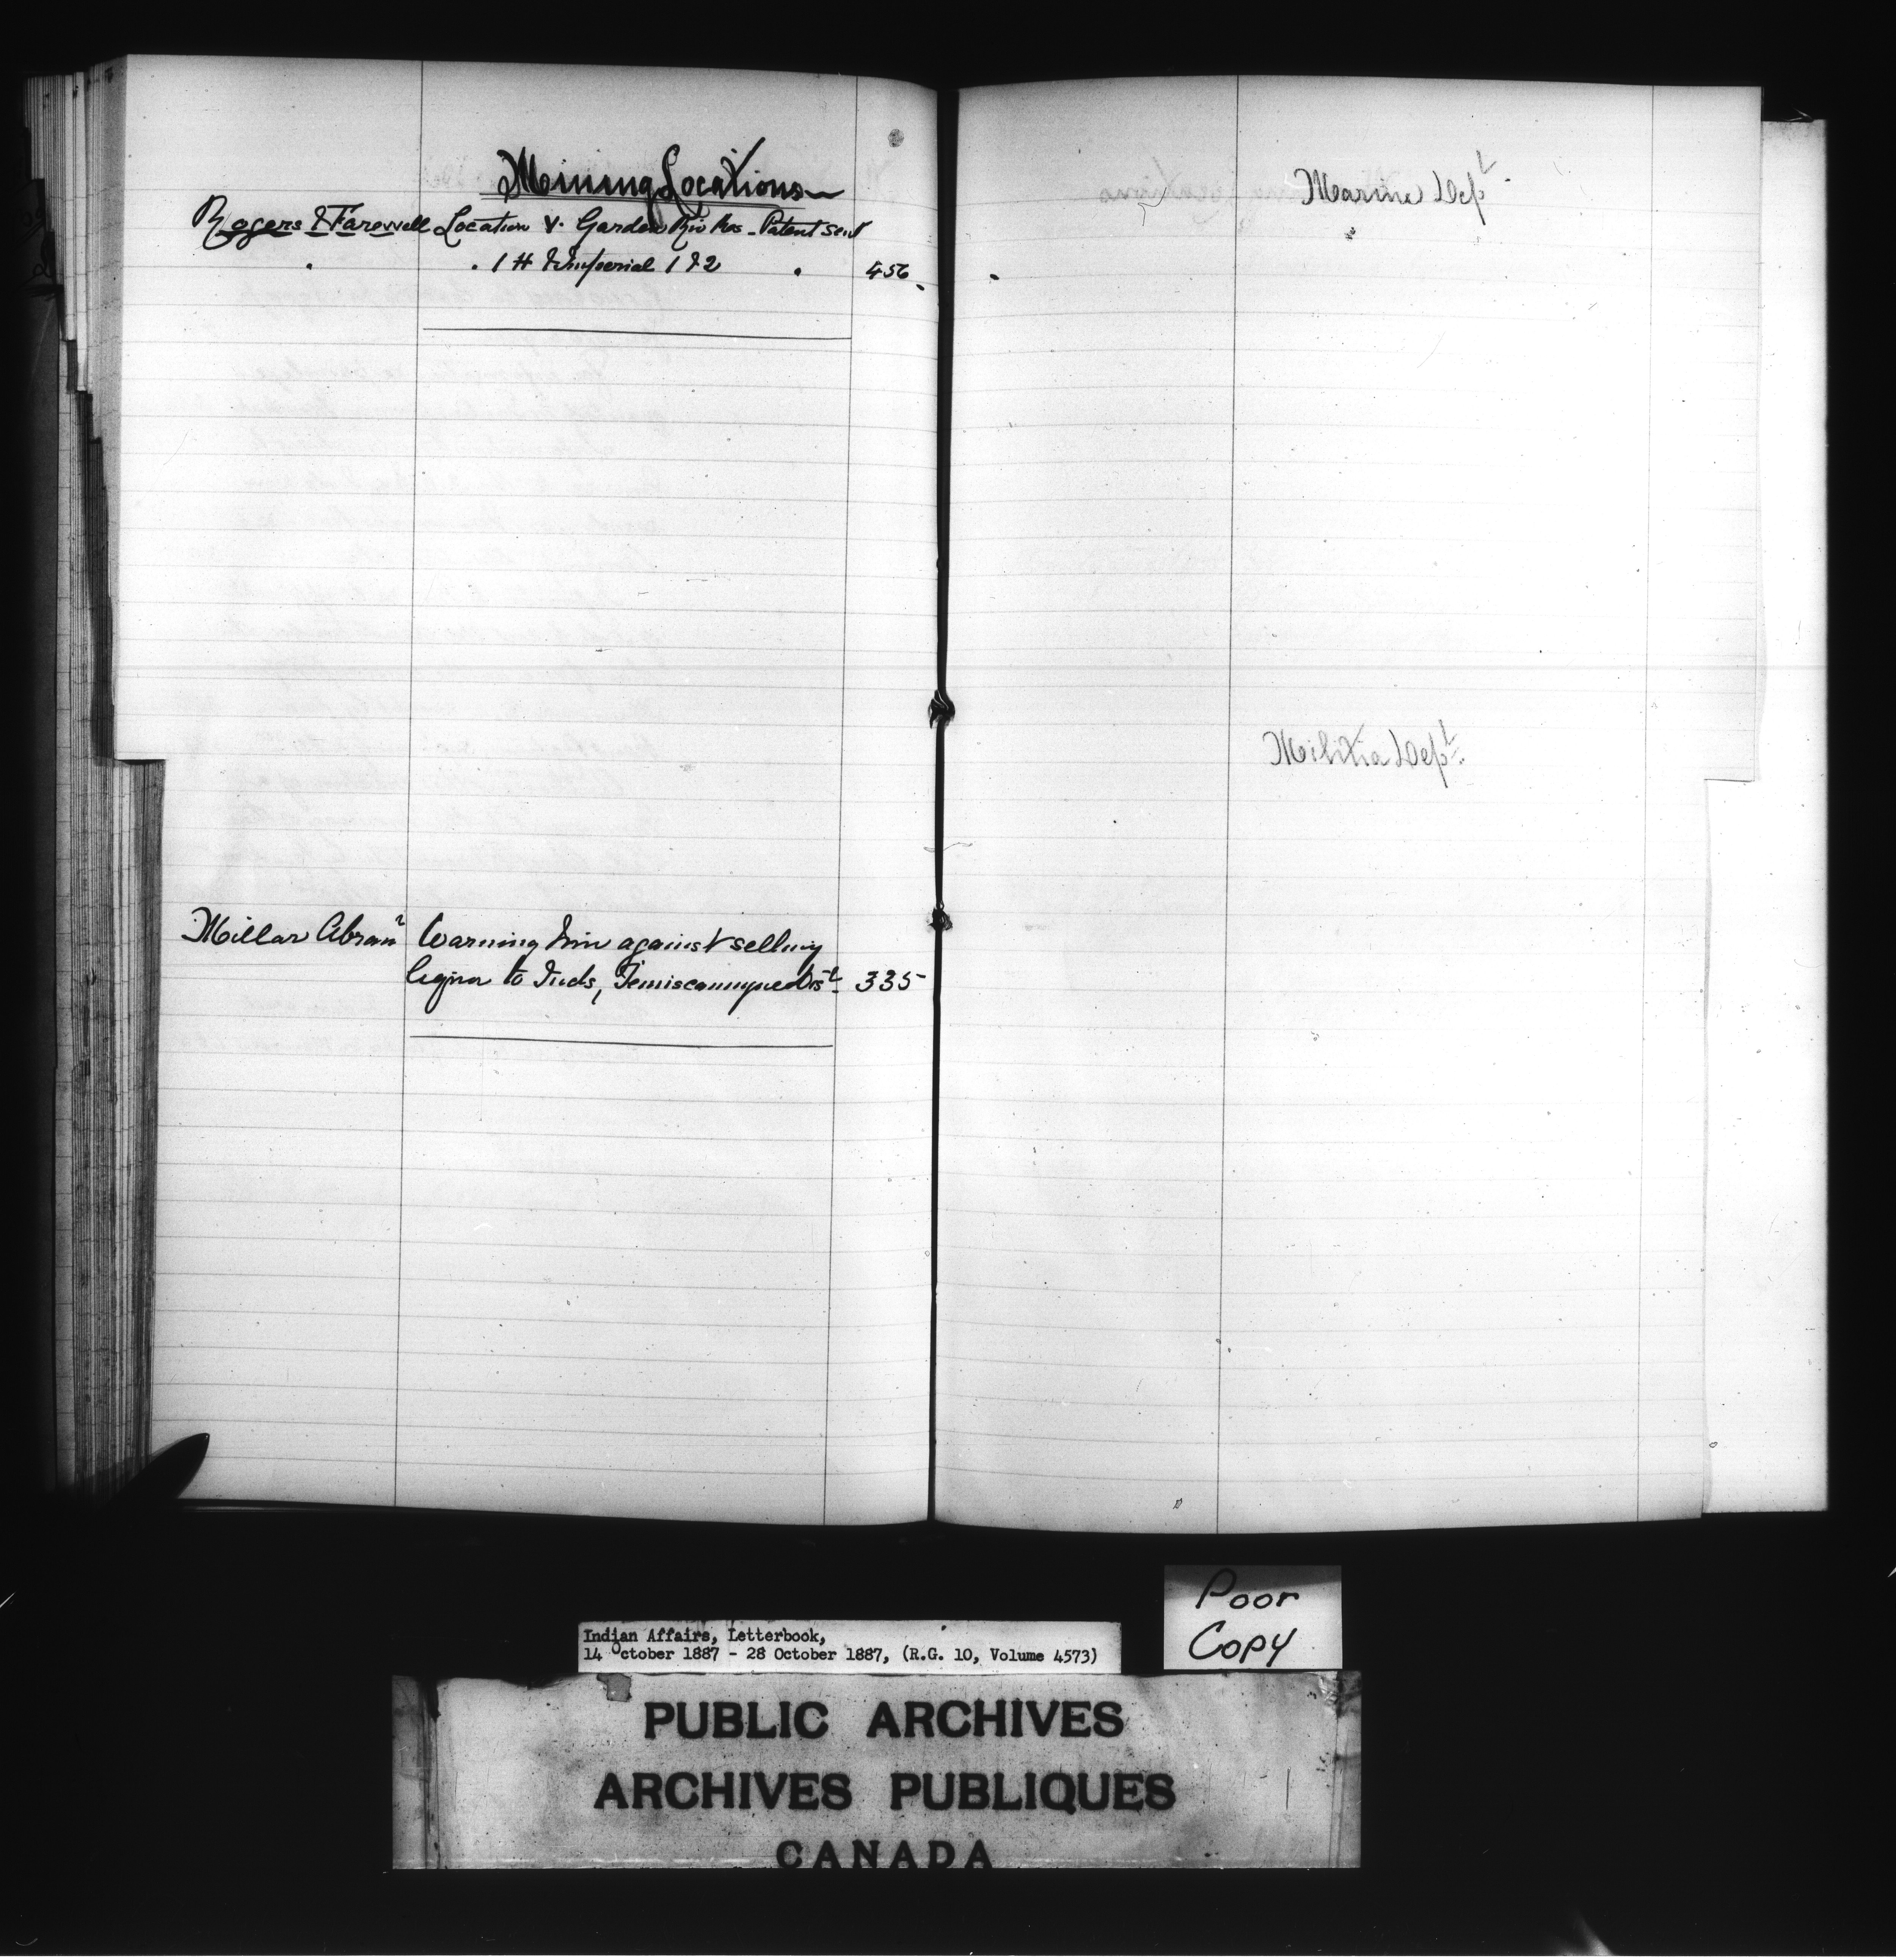 Mining Locations
Rogers & Farewell Location V. Garden Riv Res. Patent sent
" " 1 H & Imperial 1 & 2 " 456
Millar Abram Warning him against selling
liquor to Inds, Temiscamingue Dist. 335
Marine Dept
Militia Dept.
Poor
Copy
Indian Affairs, Letterbook,
14 October 1887 - 28 October 1887, (R.G. 10, Volume 4573)
PUBLIC ARCHIVES
ARCHIVES PUBLIQUES
CANADA